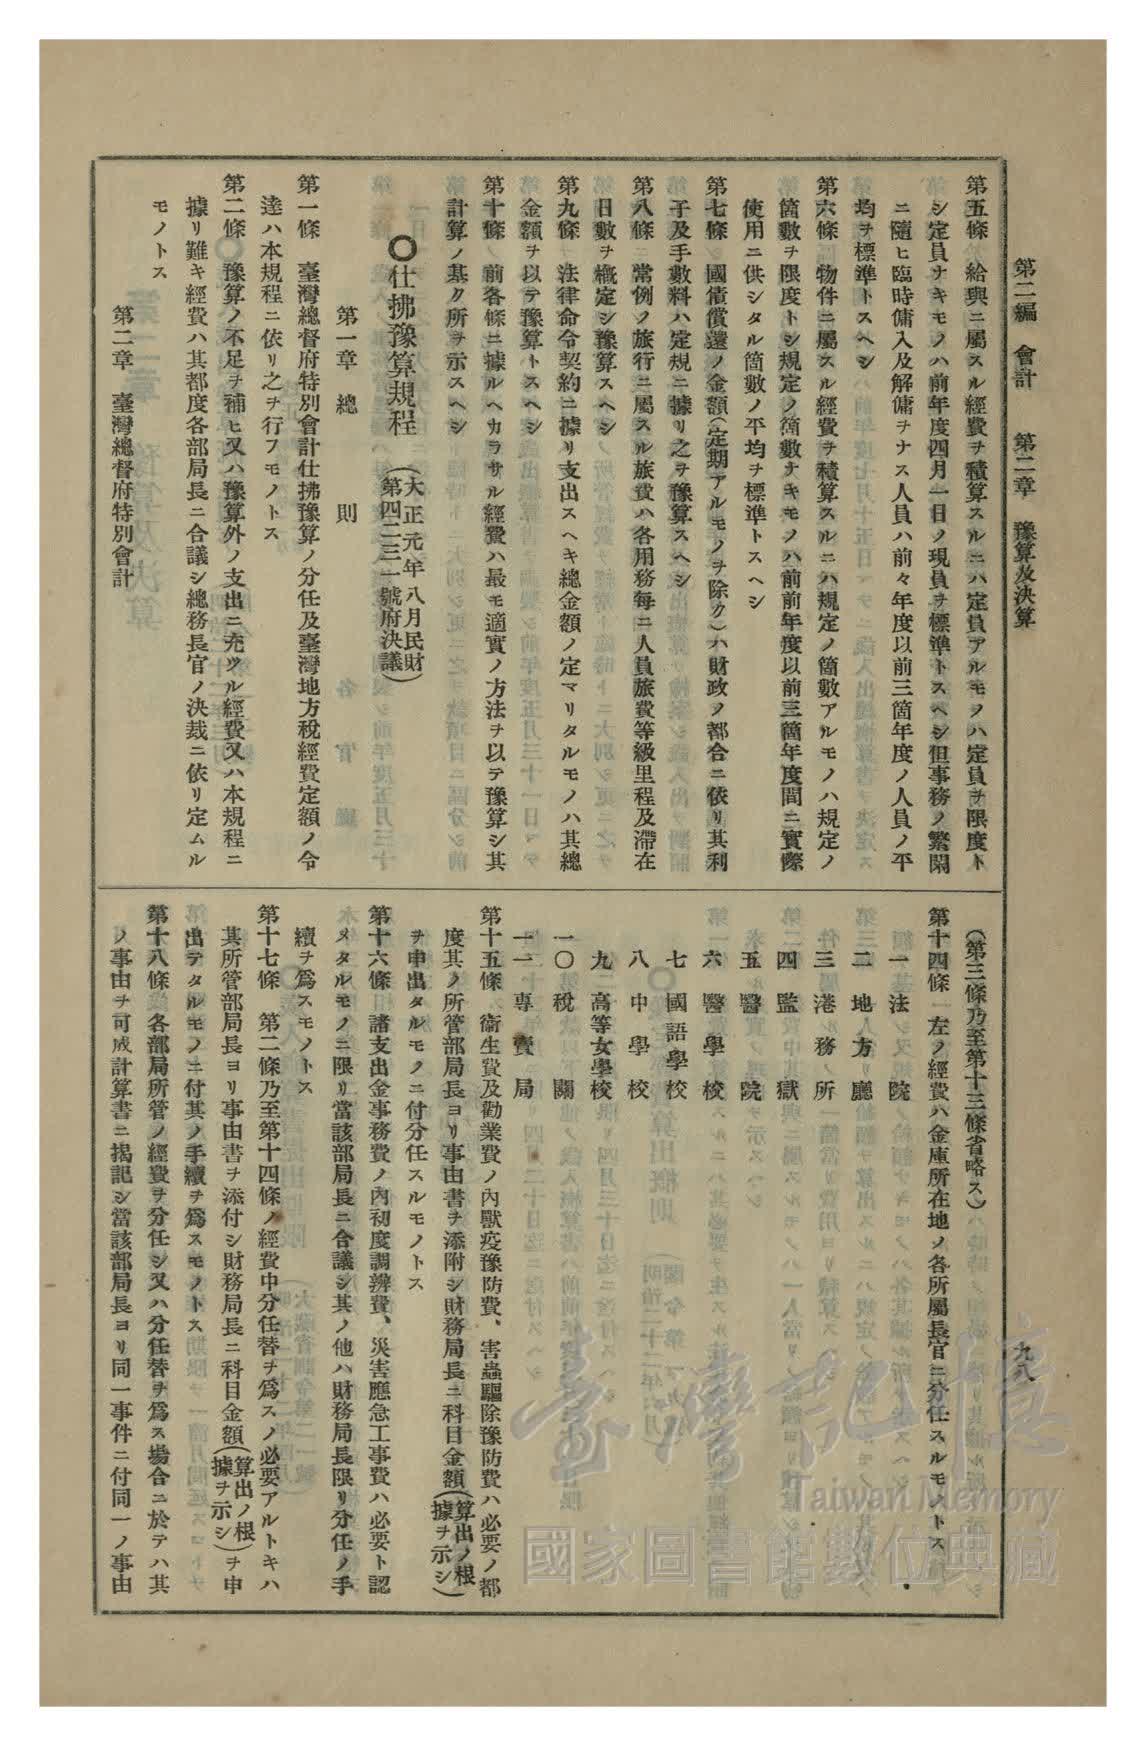 第二編　會計　　第二章　豫算及決算
九八
第五條　給與ニ屬スル經費ヲ積算スルニハ定員アルモノハ定員ヲ限度ト
シ定員ナキモノハ前年度四月一日ノ現員ヲ標準トスヘシ但事務ノ繁閑
ニ隨ヒ臨時傭入及解傭ヲナス人員ハ前々年度以前三箇年度ノ人員ノ平
均ヲ標準トスヘシ
第六條　物件ニ屬スル經費ヲ積算スルニハ規定ノ箇數アルモノハ規定ノ
箇數ヲ限度トシ規定ノ箇數ナキモノハ前前年度以前三箇年度間ニ實際
使用ニ供シタル箇數ノ平均ヲ標準トスヘシ
第七條　國債償還ノ金額（定期アルモノヲ除ク）ハ財政ノ都合ニ依リ其利
子及手數料ハ定規ニ據リ之ヲ豫算スヘシ
第八條　常例ノ旅行ニ屬スル旅費ハ各用務每ニ人員旅費等級里程及滯在
日數ヲ槪定シ豫算スヘシ
第九條　法律命令契約ニ據リ支出スヘキ總金額ノ定マリタルモノハ其總
金額ヲ以テ豫算トスヘシ
第十條　前各條ニ據ルヘカラサル經費ハ最モ適實ノ方法ヲ以テ豫算シ其
計算ノ基ク所ヲ示スヘシ
〇仕拂豫算規程（大正元年八月民財
第四二三一號府決議）
第一章　總　則
第一條　臺灣總督府特別會計仕拂豫算ノ分任及臺灣地方稅經費定額ノ令
達ハ本規程ニ依リ之ヲ行フモノトス
第二條　豫算ノ不足ヲ補ヒ又ハ豫算外ノ支出ニ充ツル經費又ハ本規程ニ
據リ難キ經費ハ其都度各部局長ニ合議シ總務長官ノ決裁ニ依リ定ムル
モノトス
第二章　臺灣總督府特別會計
（第三條乃至第十三條省略ス）
第十四條　左ノ經費ハ金庫所在地ノ各所屬長官ニ分任スルモノトス
一　法院
二　地方廳
三　港務所
四　監獄
五　醫院
六　醫學校
七　國語學校
八　中學校
九　高等女學校
一〇　稅關
一一　專賣局
第十五條　衞生費及勸業費ノ內獸疫豫防費、害蟲驅除豫防費ハ必要ノ都
度其ノ所管部局長ヨリ事由書ヲ添附シ財務局長ニ科目金額（算出ノ根
據ヲ示シ）
ヲ申出タルモノニ付分任スルモノトス
第十六條　諸支出金事務費ノ內初度調辨費、災害應急工事費ハ必要ト認
メタルモノニ限リ當該部局長ニ合議シ其ノ他ハ財務局長限リ分任ノ手
續ヲ爲スモノトス
第十七條　第二條乃至第十四條ノ經費中分任替ヲ爲スノ必要アルトキハ
其所管部局長ヨリ事由書ヲ添付シ財務局長ニ科目金額（算出ノ根
據ヲ示シ）ヲ申
出テタルモノニ付其ノ手續ヲ爲スモノトス
第十八條　各部局所管ノ經費ヲ分任シ又ハ分任替ヲ爲ス場合ニ於テハ其
ノ事由ヲ可成計算書ニ揭記シ當該部局長ヨリ同一事件ニ付同一ノ事由
臺灣記憶
Taiwan Memory
國家圖書館數位典藏